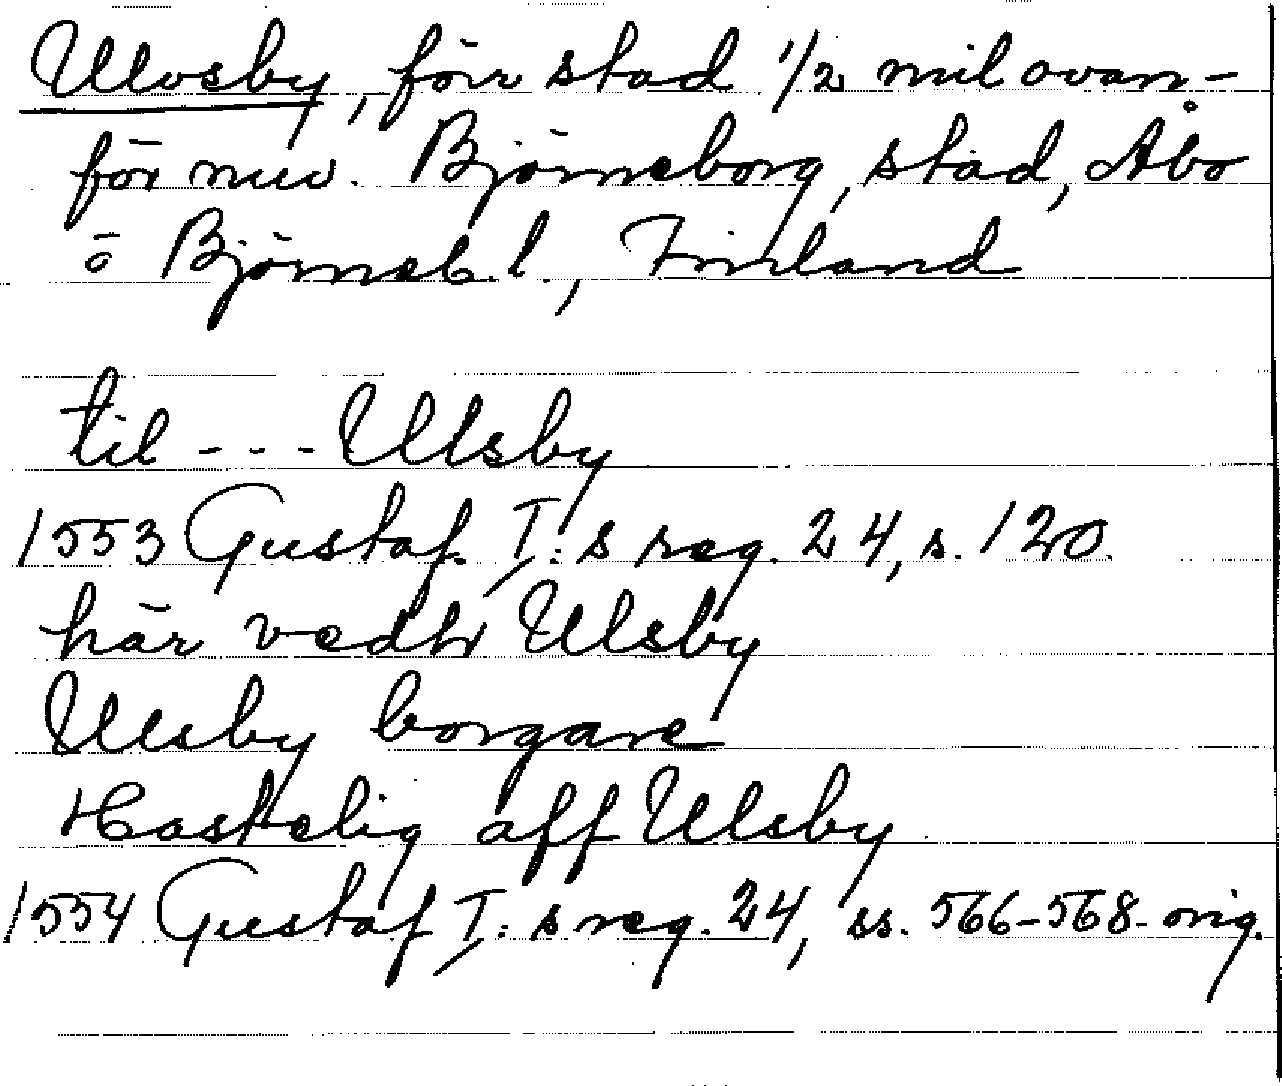 Ulvsby, förr stad 1/2 mil ovan-
för nuv. Björneborg, stad, Åbo
o Björneb. l., Finland
til - - - Ulsby
1553 Gustaf I:s reg. 24, s. 120.
här vedh Ulsby
Ulsby borgare
Hastelig aff Ulsby
1554 Gustaf I:s reg. 24, ss. 566-568. orig.